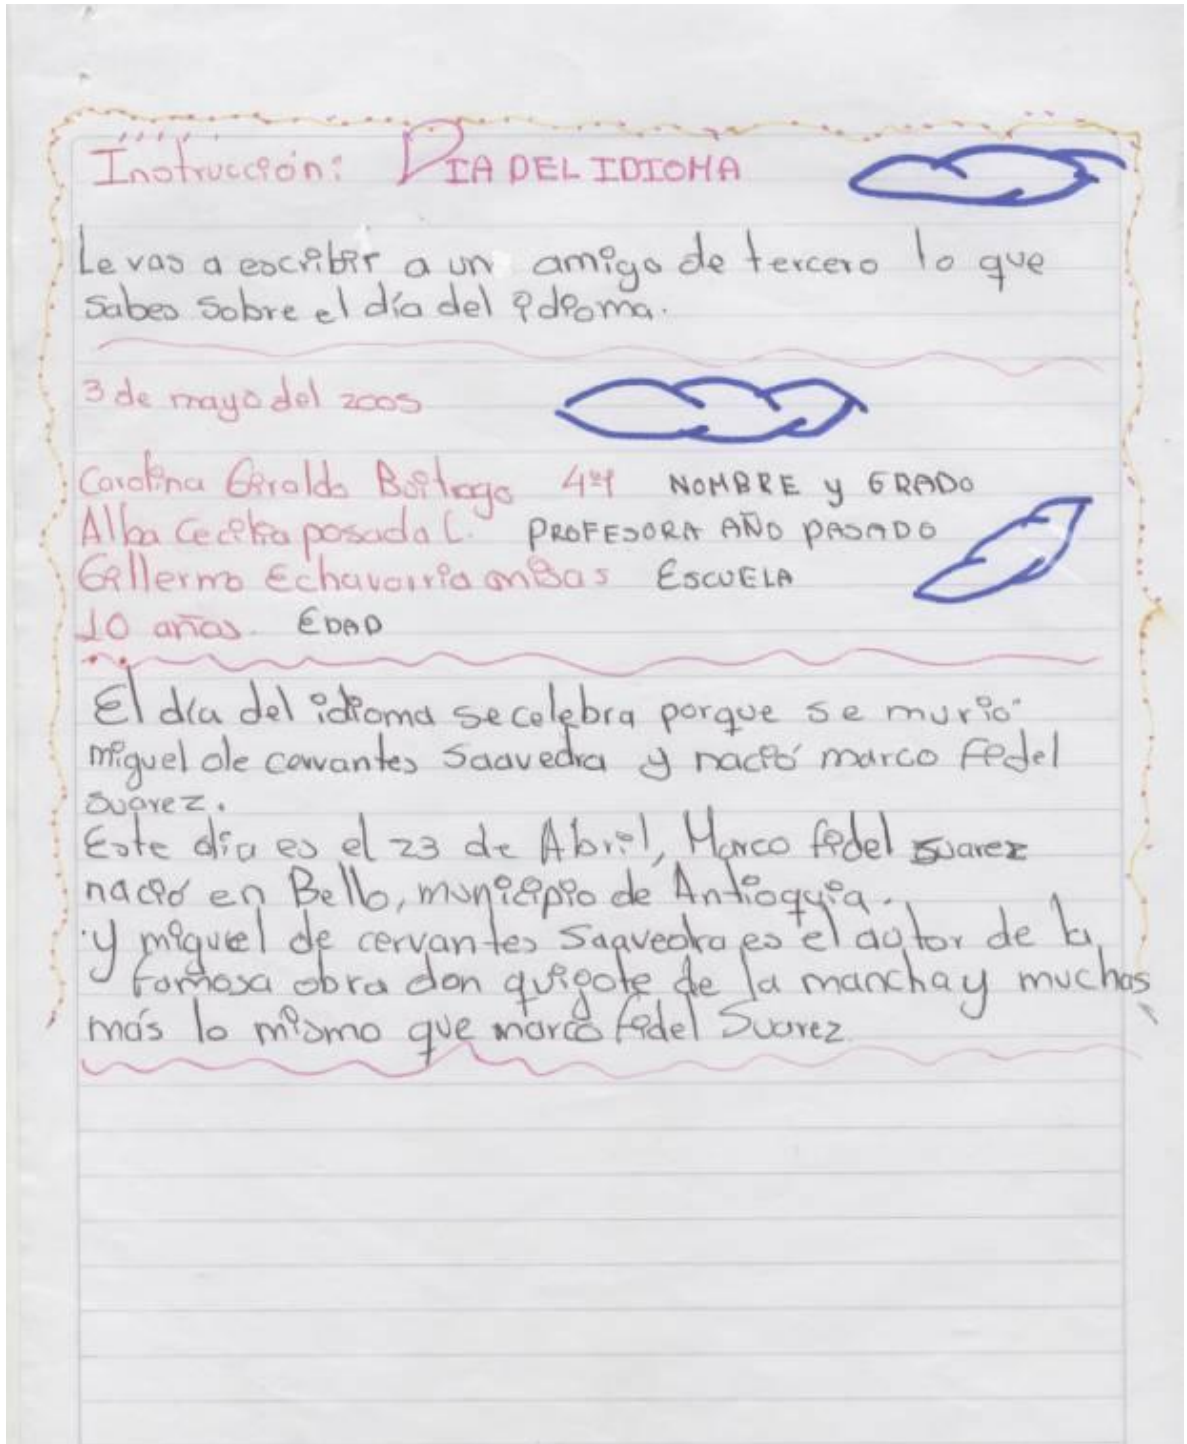 Instrucción: DIA DEL IDIOMA
Le vas a escribir a un amigo de tercero lo que
sabes sobre el día del idioma.
3 de mayo del 2005
Carolina Giraldo Buitrago 4º1 NOMBRE y GRADO
Alba Cecilia posada C. PROFESORA AÑO PASADO
Gillermo Echavarria ESCUELA
10 años. EDAD
El día del idioma se celebra porque se murio
miguel de cervantes Saavedra y nació marco fidel
suarez.
Este día es el 23 de Abril, Marco fidel suarez
nació en Bello, municipio de Antioquia.
y miguel de cervantes Saavedra es el autor de la
famosa obra don quigote de la mancha y muchas
más lo mismo que marco fidel Suarez